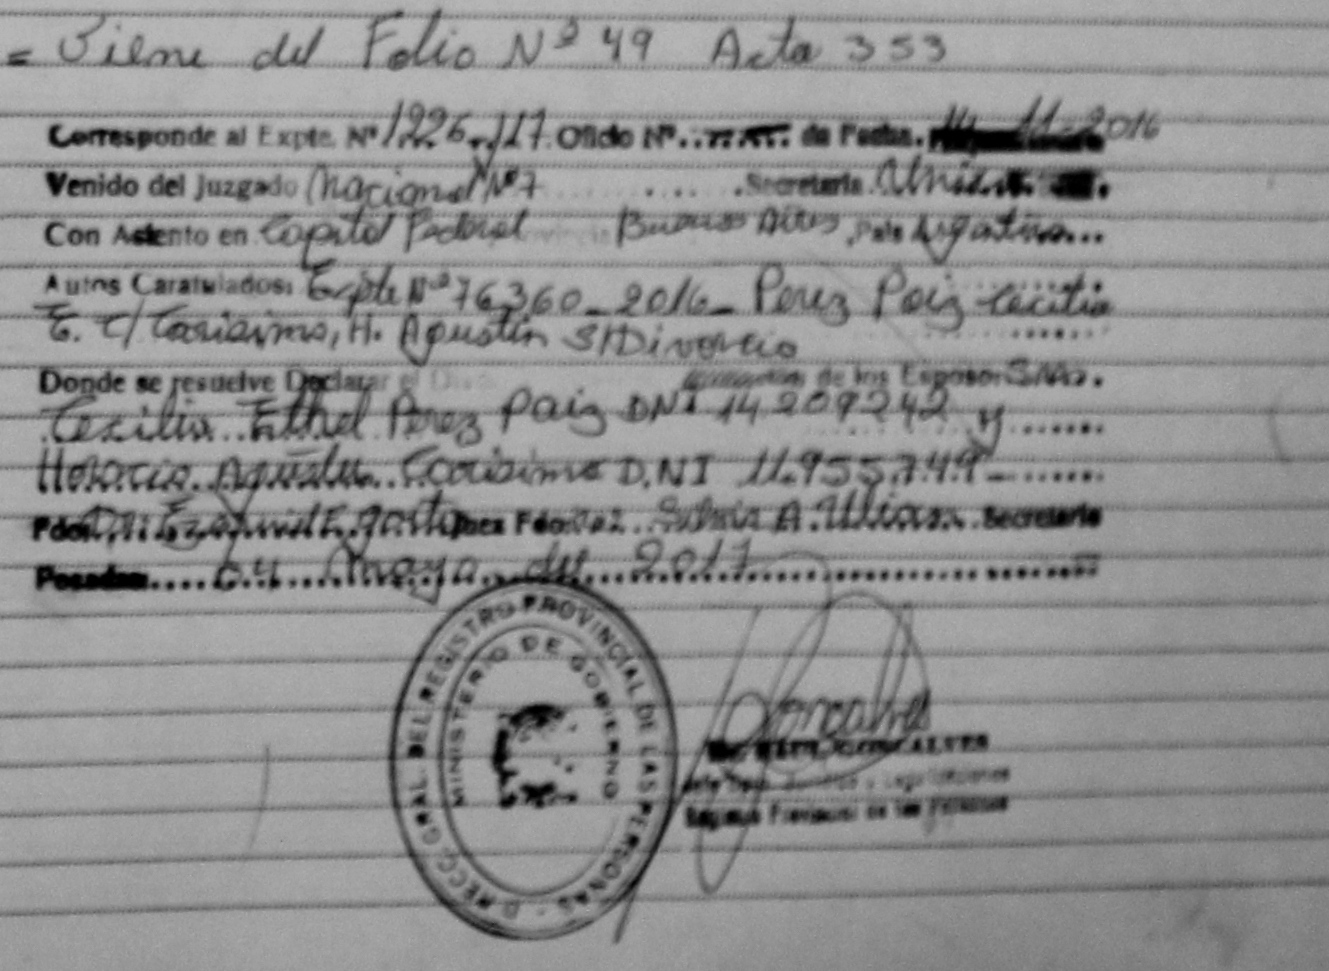 = Viene del Folio Nº 49 Acta 353
Corresponde al Expte. Nº 1226-117. Oficio Nº. de Fecha. 14-11-2016
Venido del Juzgado Nacional Nº 7 Secretaria
Con Asiento en Capital Federal Provincia Buenos Aires, Pais Argentina
Autos Caratulados: Expte Nº 76360-2016- Perez Paiz Cecilia
E. C/ H. Agustín S/Divorcio
Donde se resuelve Declarar el de los Esposos
Cecilia Ethel Perez Paiz DNI 14209242 y
Horacio Agustín D.NI 11.955.749-
Fdo. Dr. Juez Fdo. Silvia A. Secretaria
Posadas 04 Mayo del 2017
DIRECC. GRAL. DEL REGISTRO PROVINCIAL DE LAS PERSONAS -
MINISTERIO DE GOBIERNO
GONCALVES
Registro Provincial de las Personas